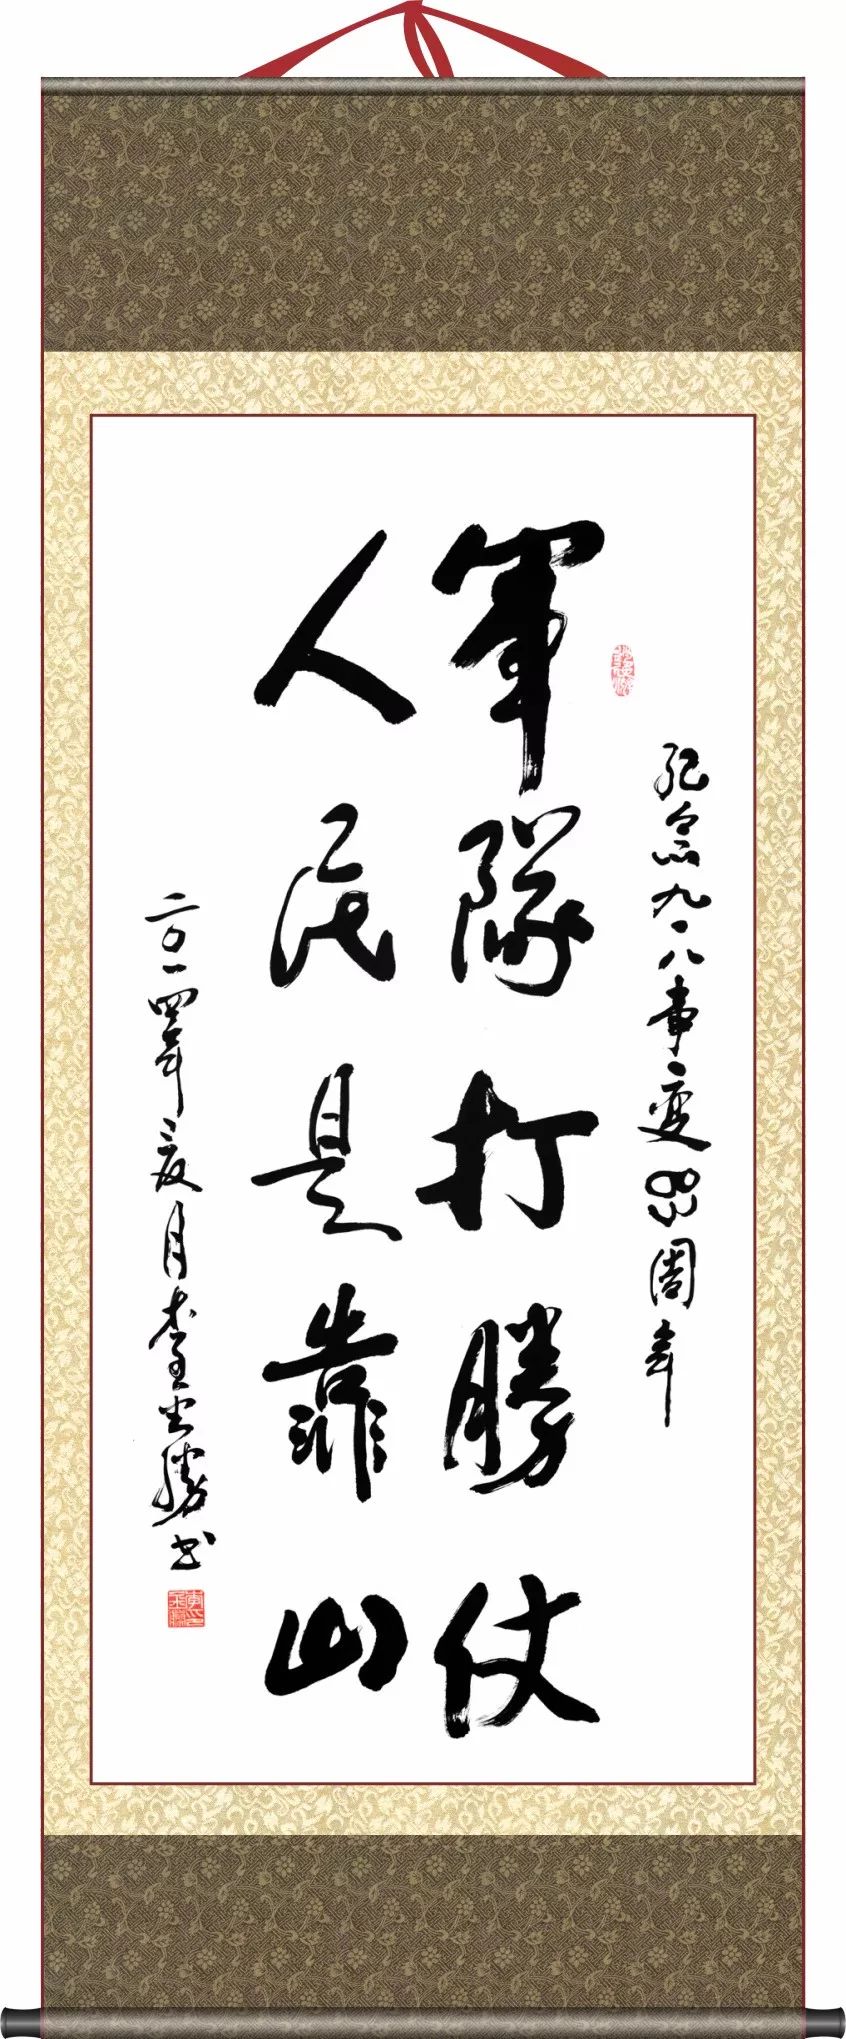 纪念九一八事变83周年
軍隊打勝仗
人民是靠山
二〇一四年 月李 勝书